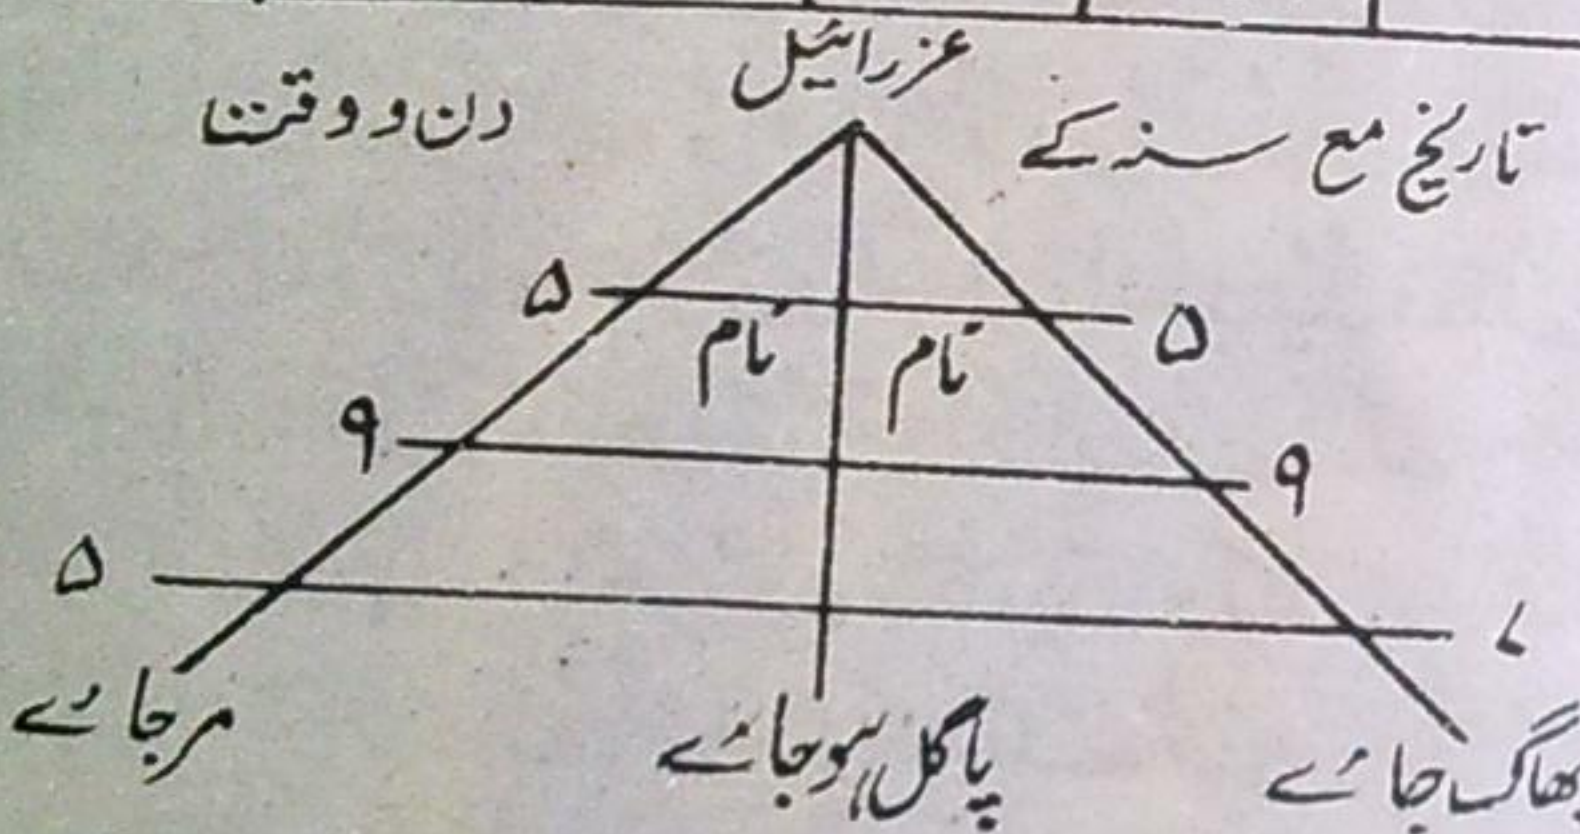 عزرائیل
تاریخ مع سنہ کے دن و وقت
۵ ۵
نام نام
۹ ۹
۵
بھاگ جائے پاگل ہوجائے مرجائے